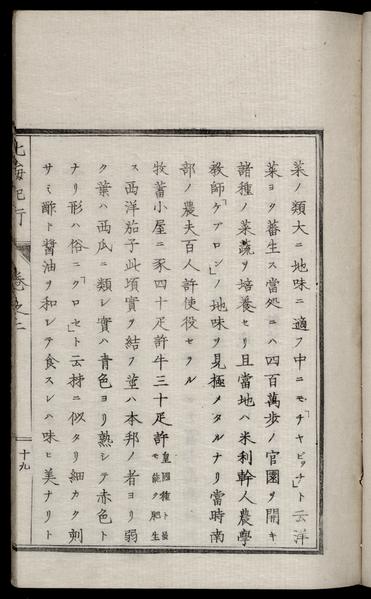 菜ノ類大ニ地味ニ適フ中ニモ「チヤビツチ」ト云洋
菜ヨク蕃生ス當処ニハ四百萬歩ノ官園ヲ開キ
諸種ノ菜蔬ヲ培養セリ且當地ハ米利幹人農學
教師「ケアロン」ノ地味ヲ見極メタルナリ當時南
部ノ農夫百人許使役セラル
牧蓄小屋ニ豕四十疋許牛三十疋許皇國種ト
モ能ク肥生
ス西洋茄子此頃實ヲ結フ莖ハ本邦ノ者ヨリ弱
ク葉ハ西瓜ニ類レ實ハ青色ヨリ熟シテ赤色ト
ナリ形ハ俗ニ「クロセ」ト云柹ニ似タリ細カク刻
サミ酢ト醬油ヲ和レテ食スレハ味ヒ美ナリト
北海紀行
卷之二
十九